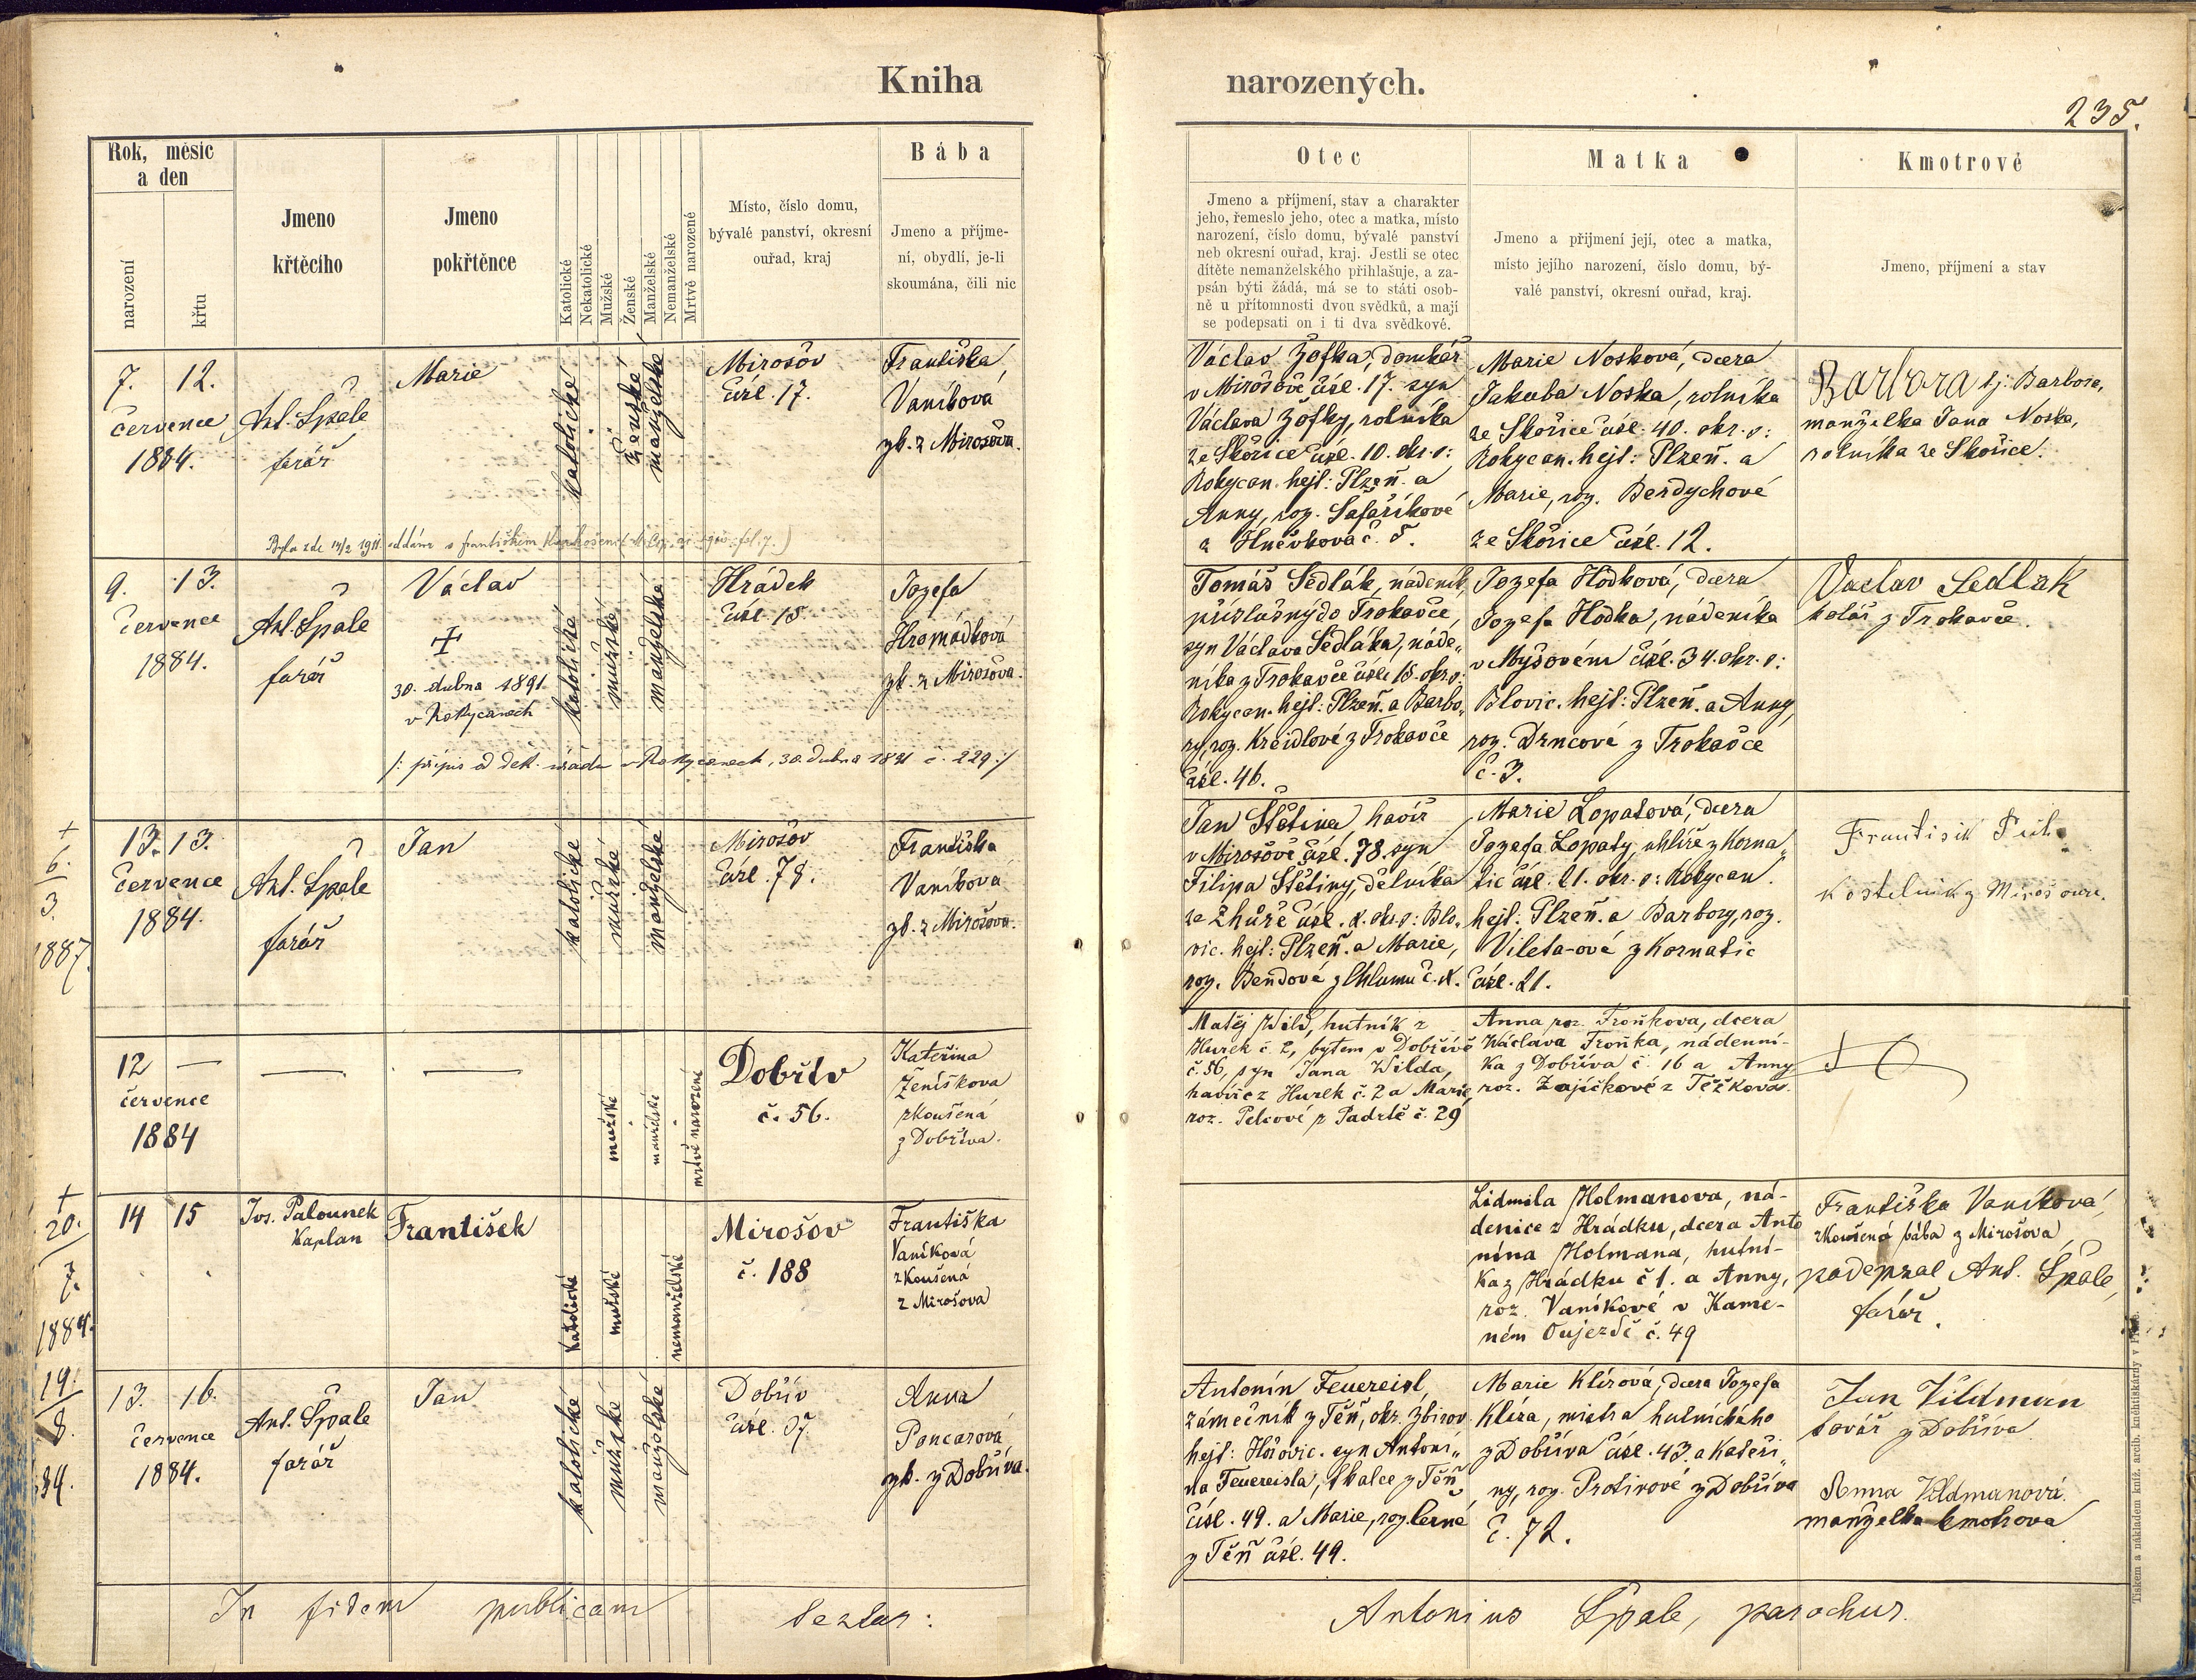 Kniha narozených.
235.
Rok, měsíc
a den
narození
křtu
Jmeno
křtěcího
Jmeno
pokřtěnce
Katolické
Nekatolické
Mužské
Ženské
Manželské
Nemanželské
Mrtvě narozené
Místo, číslo domu,
bývalé panství, okresní
ouřad, kraj
Bába
Jmeno a příjme-
ní, obydlí, je-li
skoumána, čili nic
Otec
Jmeno a příjmení, stav a charakter
jeho, řemeslo jeho, otec a matka, místo
narození, číslo domu, bývalé panství
neb okresní ouřad, kraj. Jestli se otec
dítěte nemanželského přihlašuje, a za-
psán býti žádá, má se to státi osob-
ně u přítomnosti dvou svědků, a mají
se podepsati on i ti dva svědkové.
Matka
Jmeno a přijmení její, otec a matka,
místo jejího narození, číslo domu, bý-
valé panství, okresní ouřad, kraj.
Kmotrové
Jmeno, příjmení a stav
7. 12.
července
1884.
Ant. Špale
farář
Marie
katolické
ženské
manželské
Mirošov
čísl. 17.
Františka
Vaníková
zk. z Mirošova.
Václav Žofka, domkář
v Mirošově čísl. 17. syn
Václava Žofky, rolníka
ze Skořice čísl. 10. okr. o:
Rokycan. hejt: Plzeň. a
Anny, roz. Šafaříkové
z Hněvkova č. 5.
Marie Nosková, dcera
Jakuba Noska, rolníka
ze Skořice čísl. 40. okr. o:
Rokycan. hejt: Plzeň. a
Marie, roz. Berdychové
ze Skořice čísl. 12.
Barbora tj. Barbora,
manželka Jana Noska,
rolníka ze Skořice.
Byla zde 14/2 1911 oddána s Františkem
9. 13.
července
1884.
Ant. Špale
farář
Václav
+
30. dubna 1891
v Rokycanech
katolické
mužské
manželské
Hrádek
čísl. 15.
Jozefa
Hromádková
zk. z Mirošova.
Tomáš Sedlák, nádeník,
příslušný do Trokavce,
syn Václava Sedláka, náde„
níka z Trokavce čísl. 15. okr. o:
Rokycan. hejt: Plzeň. a Barbo„
ry, roz. Kreidlové z Trokavce
čísl. 46.
Jozefa Hodková, dcera
Jozefa Hodka, nádeníka
v Myšovém čísl. 34. okr. o:
Blovic. hejt: Plzeň. a Anny,
roz. Drncové z Trokavce
č. 3.
Vaclav Sedlak
kolář z Trokavce.
/: přípis od děk. úřadu v Rokycanech, 30. dubna 1891 č. 229 :/
+
6.
3.
1887.
13. 13.
července
1884.
Ant. Špale
farář
Jan
katolické
mužské
manželské
Mirošov
čísl. 78.
Františka
Vaníková
zk. z Mirošova.
Jan Štětina, havíř
v Mirošově čísl. 78. syn
Filipa Štětiny, dělníka
ze Zhůře čísl. 8. okr. o: Blo„
vic. hejt: Plzeň. a Marie,
roz. Bendové z Chlumu č. 8.
Marie Lopatová, dcera
Jozefa Lopaty, uhlíře z Korna„
tic čísl. 21. okr. o: Rokycan.
hejt: Plzeň. a Barbory, roz.
Vileta-ové z Kornatic
čísl. 21.
Frantisik
Kostelnik z Mirosova.
12 —
července
1884
mužské
manželské
mrtvě narozené
Dobřív
č. 56.
Kateřina
Ženíškova
zkoušená
z Dobříva.
Matěj Wild, hutník z
Hurek č. 2, bytem v Dobřívě
č. 56, syn Jana Wilda,
havíře z Hurek č. 2 a Marie
roz. Pelcové z Padrtě č. 29
Anna roz. Froňkova, dcera
Wáclava Froňka, nádenní-
ka z Dobříva č. 16 a Anny
roz. Zajíčkové z Těžkova.
+
20.
7.
1884.
14 15
Jos. Palounek
kaplan
František
katolické
mužské
nemanželské
Mirošov
č. 188
Františka
Vaníková
zkoušená
z Mirošova
Lidmila Holmanova, ná-
denice z Hrádku, dcera Anto
nína Holmana, hutní-
ka z Hrádku č 1. a Anny,
roz. Vaníkové v Kame-
ném Oujezdě č. 49
Františka Vaníková,
zkoušená bába z Mirošova
podepsal Ant. Špale,
farář.
19.
8.
84.
13. 16.
července
1884.
Ant. Špale
farář
Jan
katolické
mužské
manželské
Dobřív
čísl. 97.
Anna
Poncarová
zk. z Dobříva.
Antonín Feuereisl,
zámečník z Těň, okr. Zbirov
hejt: Hořovic. syn Antoní„
na Feuereisla, tkalce z Těň
čísl. 49. a Marie, roz. Černé
z Těň čísl. 49.
Marie Klírová, dcera Jozefa
Klíra, mistra hutnického
z Dobříva čísl. 43. a Kateři„
ny, roz. Protivové z Dobříva
č. 72.
Jan Vildman
kovář z Dobříva
Anna Vildmanová.
manželka kmotrova
In fidem publicam testor:
Antonius Špale, parochus.